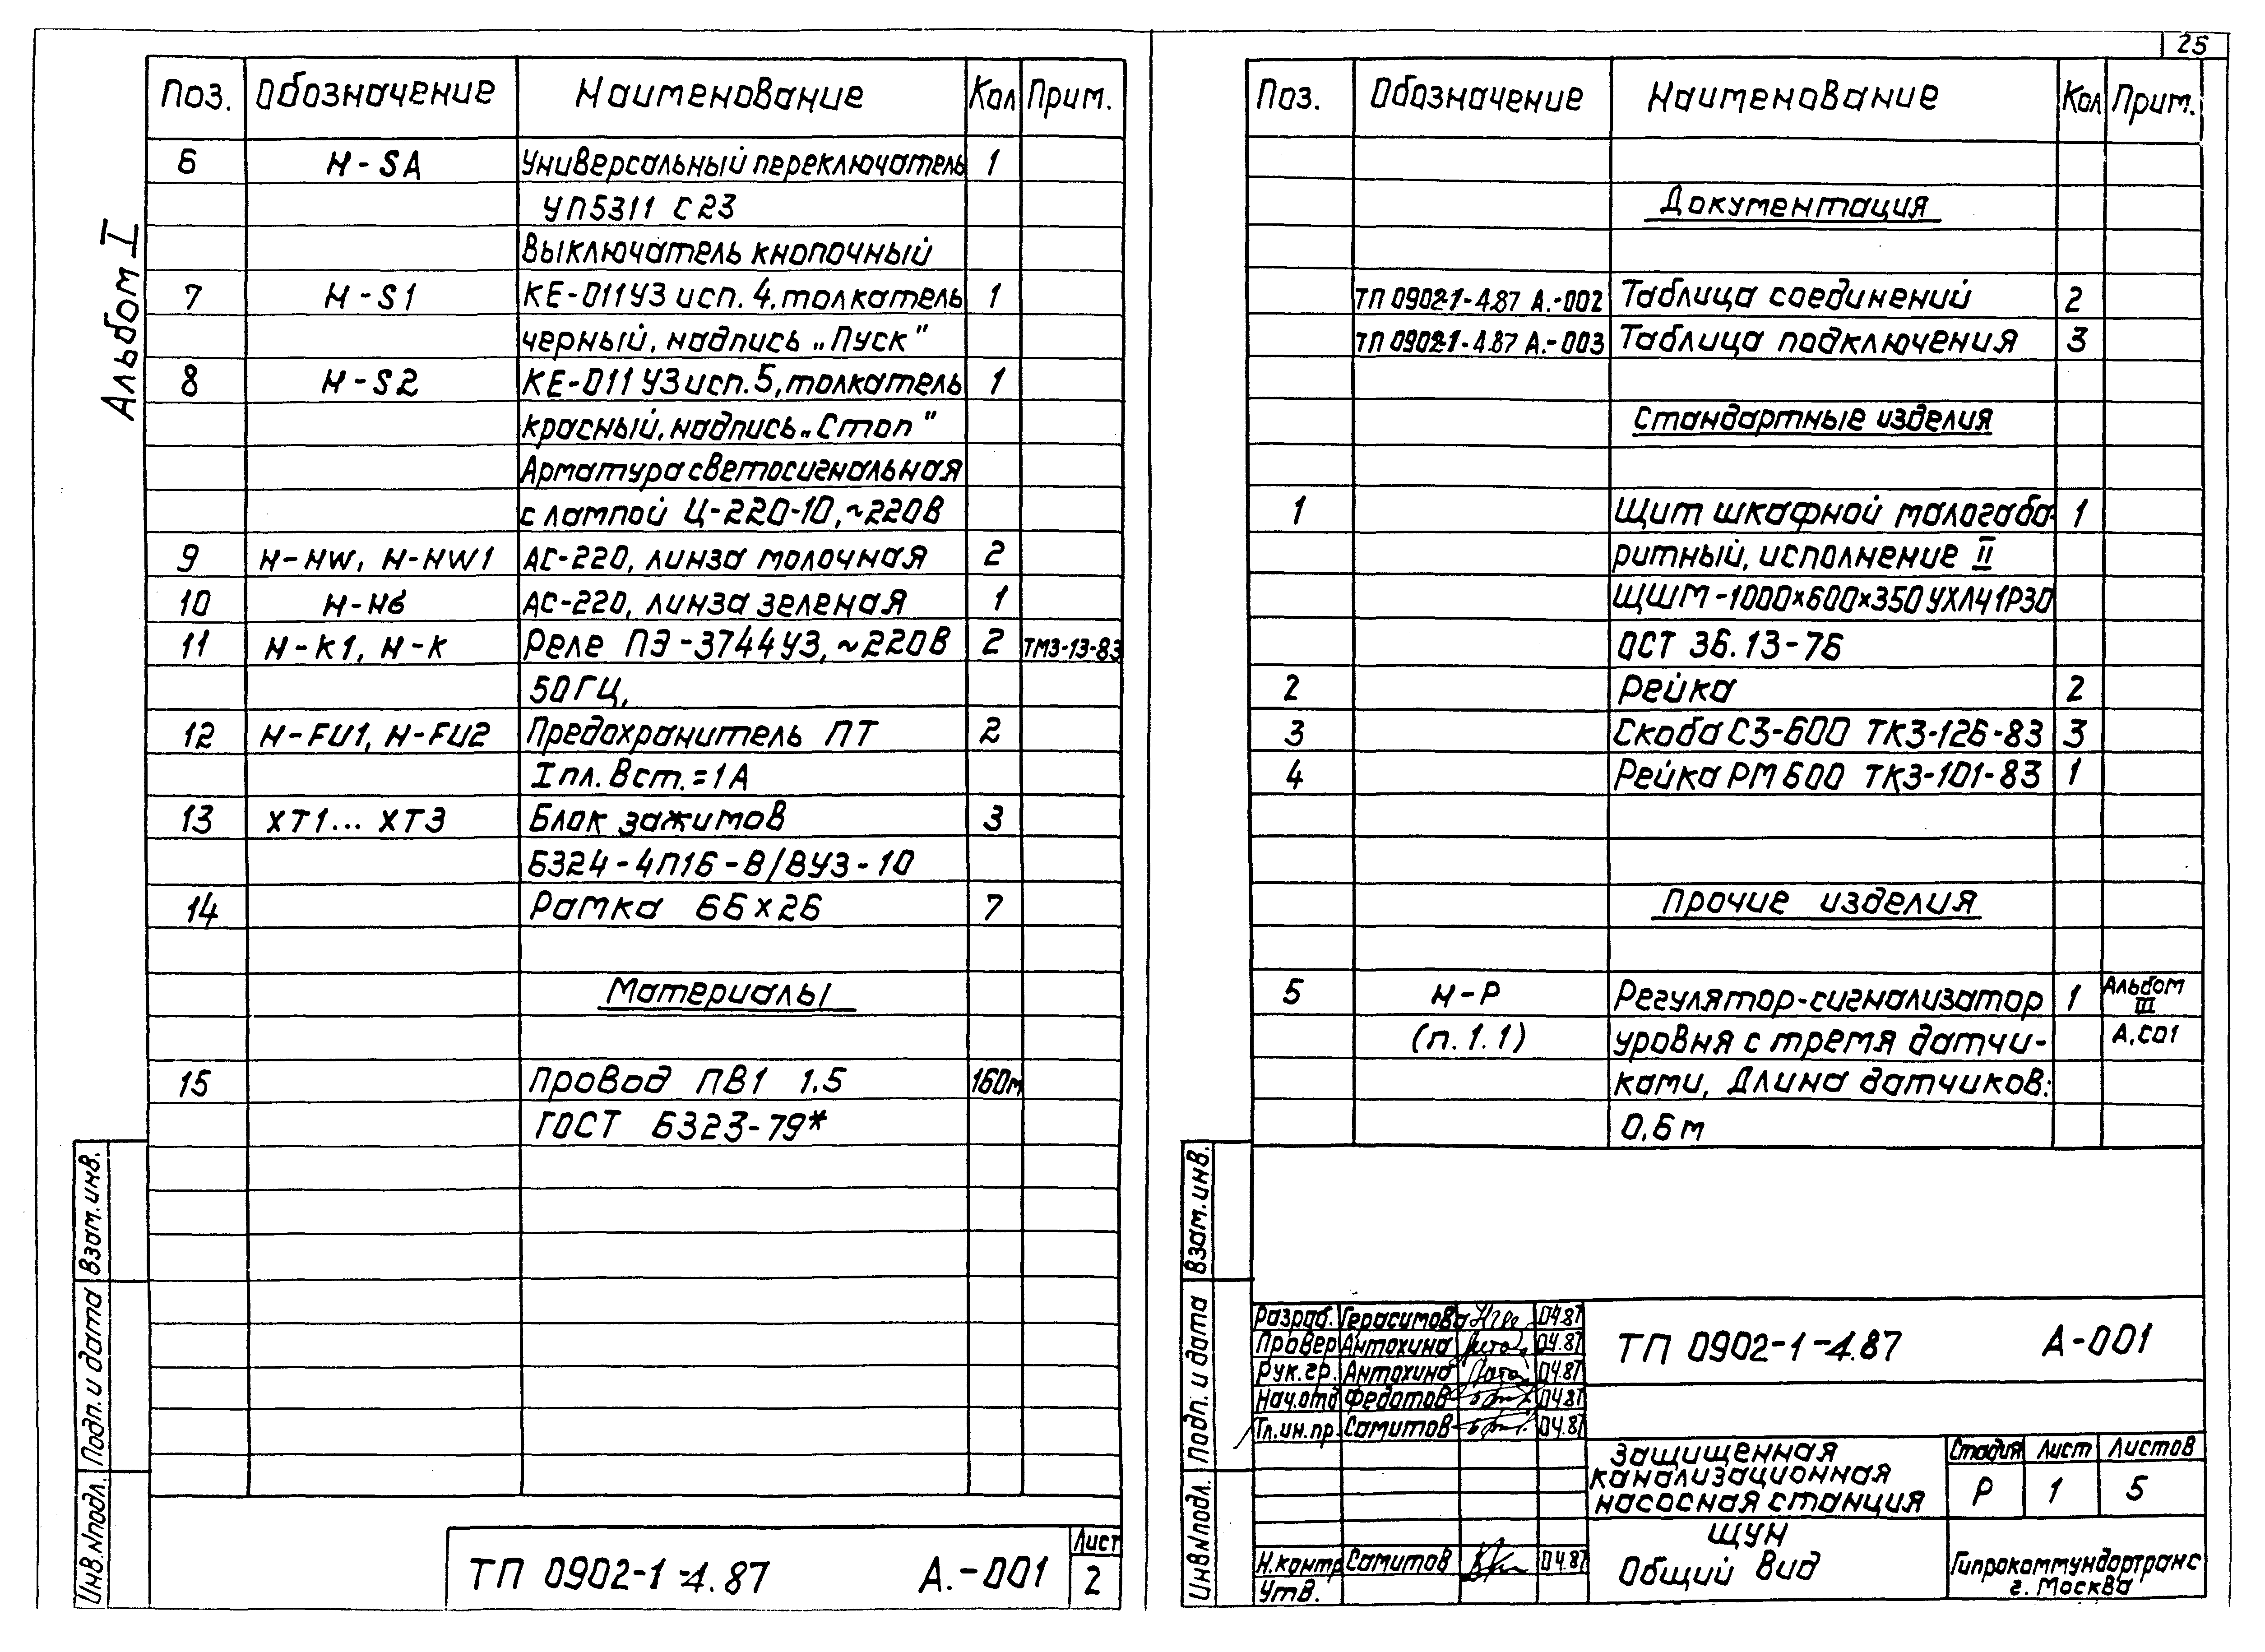 25
Альбом I
Поз. Обозначение Наименование Кол Прим.
6 Н-SA Универсальный переключатель 1
УП5311 С23
Выключатель кнопочный
7 Н-S1 КЕ-011У3 исп. 4, толкатель 1
черный, надпись „Пуск"
8 Н-S2 КЕ-011 У3 исп. 5, толкатель 1
красный, надпись „Стоп"
Арматура светосигнальная
с лампой Ц-220-10, ~220В
9 Н-HW, Н-HW1 АС-220, линза молочная 2
10 Н-HG АС-220, линза зеленая 1
11 Н-К1, Н-К Реле ПЭ-3744У3, ~220В 2 ТМ3-13-83
50ГЦ,
12 Н-FU1, Н-FU2 Предохранитель ПТ 2
Iпл. Вст. = 1А
13 ХТ1... ХТ3 Блок зажимов 3
Б324-4П16-В/ВУ3-10
14 Рамка 66х26 7
Материалы
15 Провод ПВ1 1.5 160м
ГОСТ 6323-79*
Взам. инв.
Подп. и дата
Инв.№подл.
ТП 0902-1-4.87 А.-001 Лист
2
Поз. Обозначение Наименование Кол Прим.
Документация
ТП 0902-1-4.87 А.-002 Таблица соединений 2
ТП 0902-1-4.87 А.-003 Таблица подключения 3
Стандартные изделия
1 Щит шкафной малогаба- 1
ритный, исполнение II
ЩШМ-1000х600х350 УХЛ4 1Р30
ОСТ 36.13-76
2 Рейка 2
3 Скоба С3-600 ТК3-126-83 3
4 Рейка РМ600 ТК3-101-83 1
Прочие изделия
5 Н-Р Регулятор-сигнализатор 1 Альбом III
(п. 1. 1) уровня с тремя датчи- А.С01
ками, Длина датчиков:
0,6 м
Взам. инв.
Подп. и дата
Инв№подл.
Разраб. Герасимова 04.87
Провер Антохина 04.87
Рук. гр. Антохина 04.87
Нач.отд Федотов 04.87
Гл.ин.пр. Самитов 04.87
Н.контр Самитов 04.87
Утв.
ТП 0902-1-4.87 А-001
Защищенная
канализационная
насосная станция
Стадия Лист Листов
Р 1 5
ЩУН
Общий Вид
Гипрокоммундортранс
г. Москва